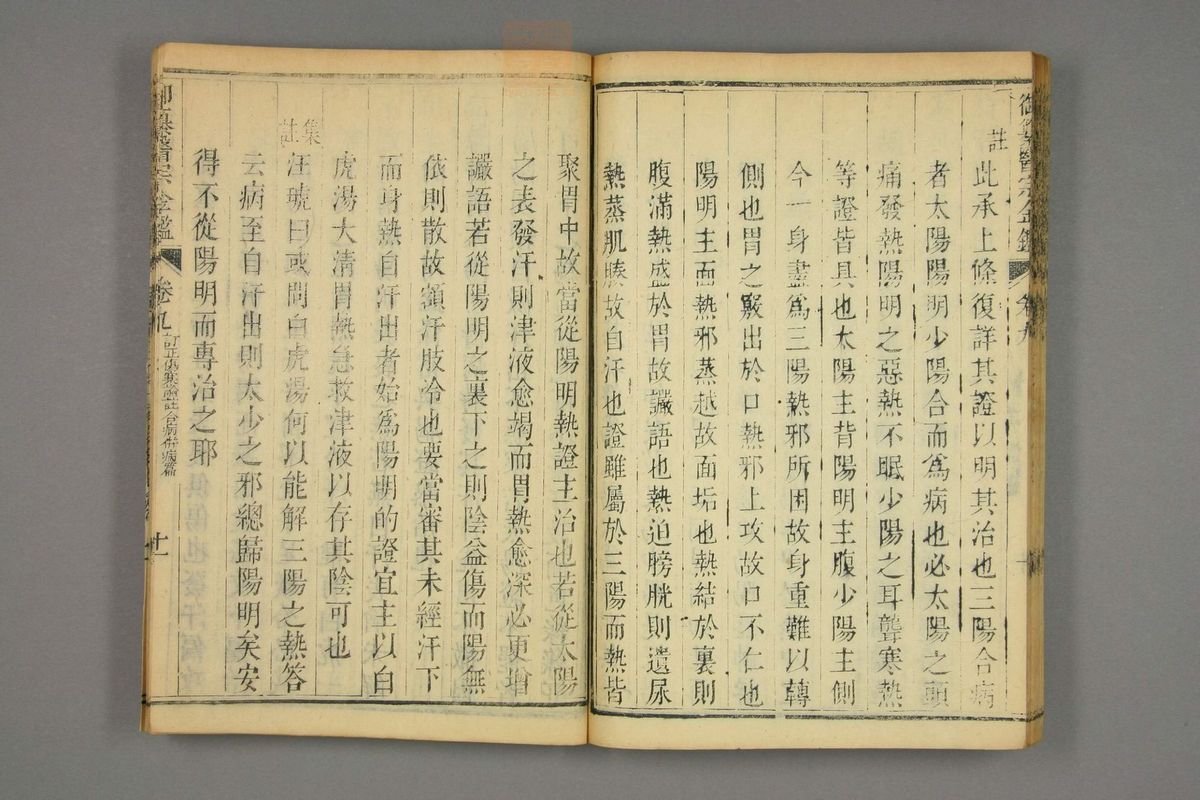 御纂醫宗金鑑 卷九
註
此承上條復詳其證以明其治也三陽合病
者太陽陽明少陽合而爲病也必太陽之頭
痛發熱陽明之惡熱不眠少陽之耳聾寒熱
等證皆具也太陽主背陽明主腹少陽主側
今一身盡爲三陽熱邪所困故身重難以轉
側也胃之竅出於口熱邪上攻故口不仁也
陽明主面熱邪蒸越故面垢也熱結於裏則
腹滿熱盛於胃故讝語也熱迫膀胱則遺尿
熱蒸肌腠故自汗也證雖屬於三陽而熱皆
聚胃中故當從陽明熱證主治也若從太陽
之表發汗則津液愈竭而胃熱愈深必更增
讝語若從陽明之裏下之則陰益傷而陽無
依則散故額汗肢冷也要當審其未經汗下
而身熱自汗出者始爲陽明的證宜主以白
虎湯大清胃熱急救津液以存其陰可也
集註
汪琥曰或問白虎湯何以能解三陽之熱答
云病至自汗出則太少之邪總歸陽明矣安
得不從陽明而專治之耶
御纂醫宗金鑑 卷九 訂正傷寒論註合病併病篇 十一